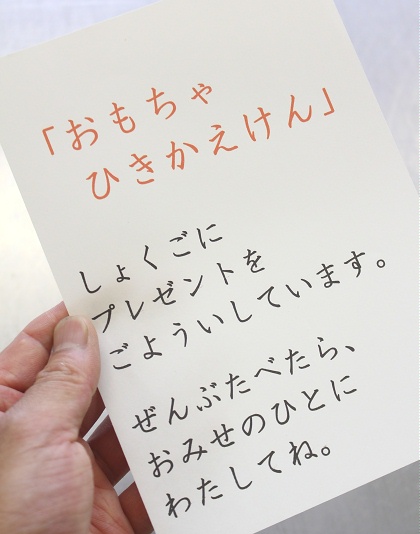 「おもちゃ
ひきかえけん」
しょくごに
プレゼントを
ごよういしています。
ぜんぶたべたら、
おみせのひとに
わたしてね。